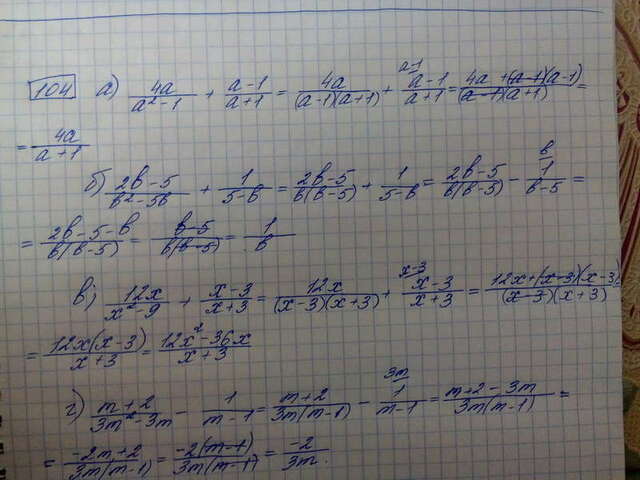 104 а) 4a/(a²-1) + (a-1)/(a+1) = 4a/((a-1)(a+1)) + (a-1)/(a+1) ^(a-1) = (4a+(a-1)(a-1))/((a-1)(a+1)) =
= 4a/(a+1)
б) (2b-5)/(b²-5b) + 1/(5-b) = (2b-5)/(b(b-5)) + 1/(5-b) = (2b-5)/(b(b-5)) - 1/(b-5) ^(b) =
= (2b-5-b)/(b(b-5)) = (b-5)/(b(b-5)) = 1/b
в) 12x/(x²-9) + (x-3)/(x+3) = 12x/((x-3)(x+3)) + (x-3)/(x+3) ^(x-3) = (12x+(x-3)(x-3))/((x-3)(x+3))
= 12x(x-3)/(x+3) = (12x²-36x)/(x+3)
г) (m+2)/(3m²-3m) - 1/(m-1) = (m+2)/(3m(m-1)) - 1/(m-1) ^(3m) = (m+2-3m)/(3m(m-1)) =
= (-2m+2)/(3m(m-1)) = -2(m-1)/(3m(m-1)) = -2/3m.